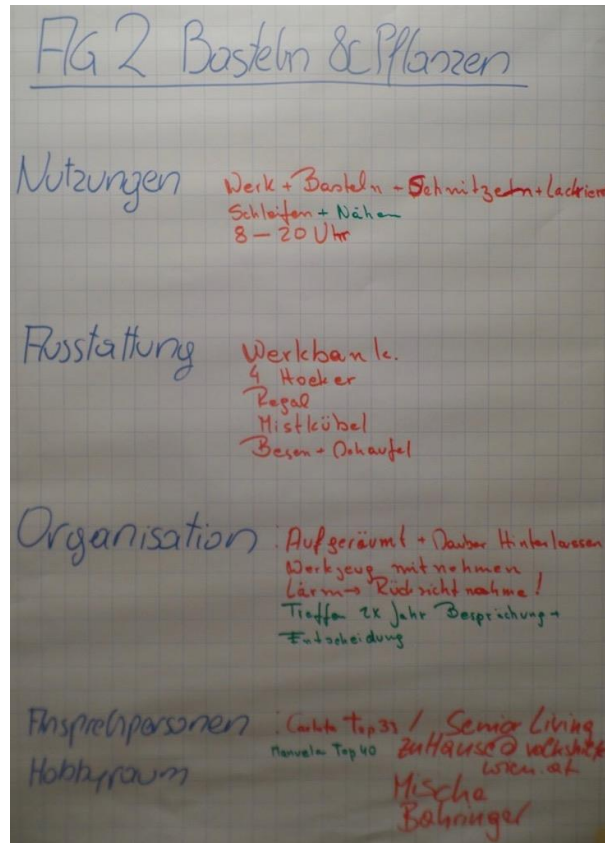 AG 2 Basteln & Pflanzen
Nutzungen
Werk + Basteln - Schnitzen + Lackieren
Schleifen + Nähen
8 – 20 Uhr
Ausstattung
Werkbank.
4 Hocker
Regal
Mistkübel
Besen + Schaufel
Organisation
: Aufgeräumt + Sauber Hinterlassen
Werkzeug mitnehmen
Lärm → Rücksichtnahme!
Treffen 2x Jahr Besprechung +
Entscheidung
Ansprechpersonen
Hobbyraum
: Top 39 / Senior Living
Manuela Top 40 zuHause@
wien.at
Mischa
Bahringer